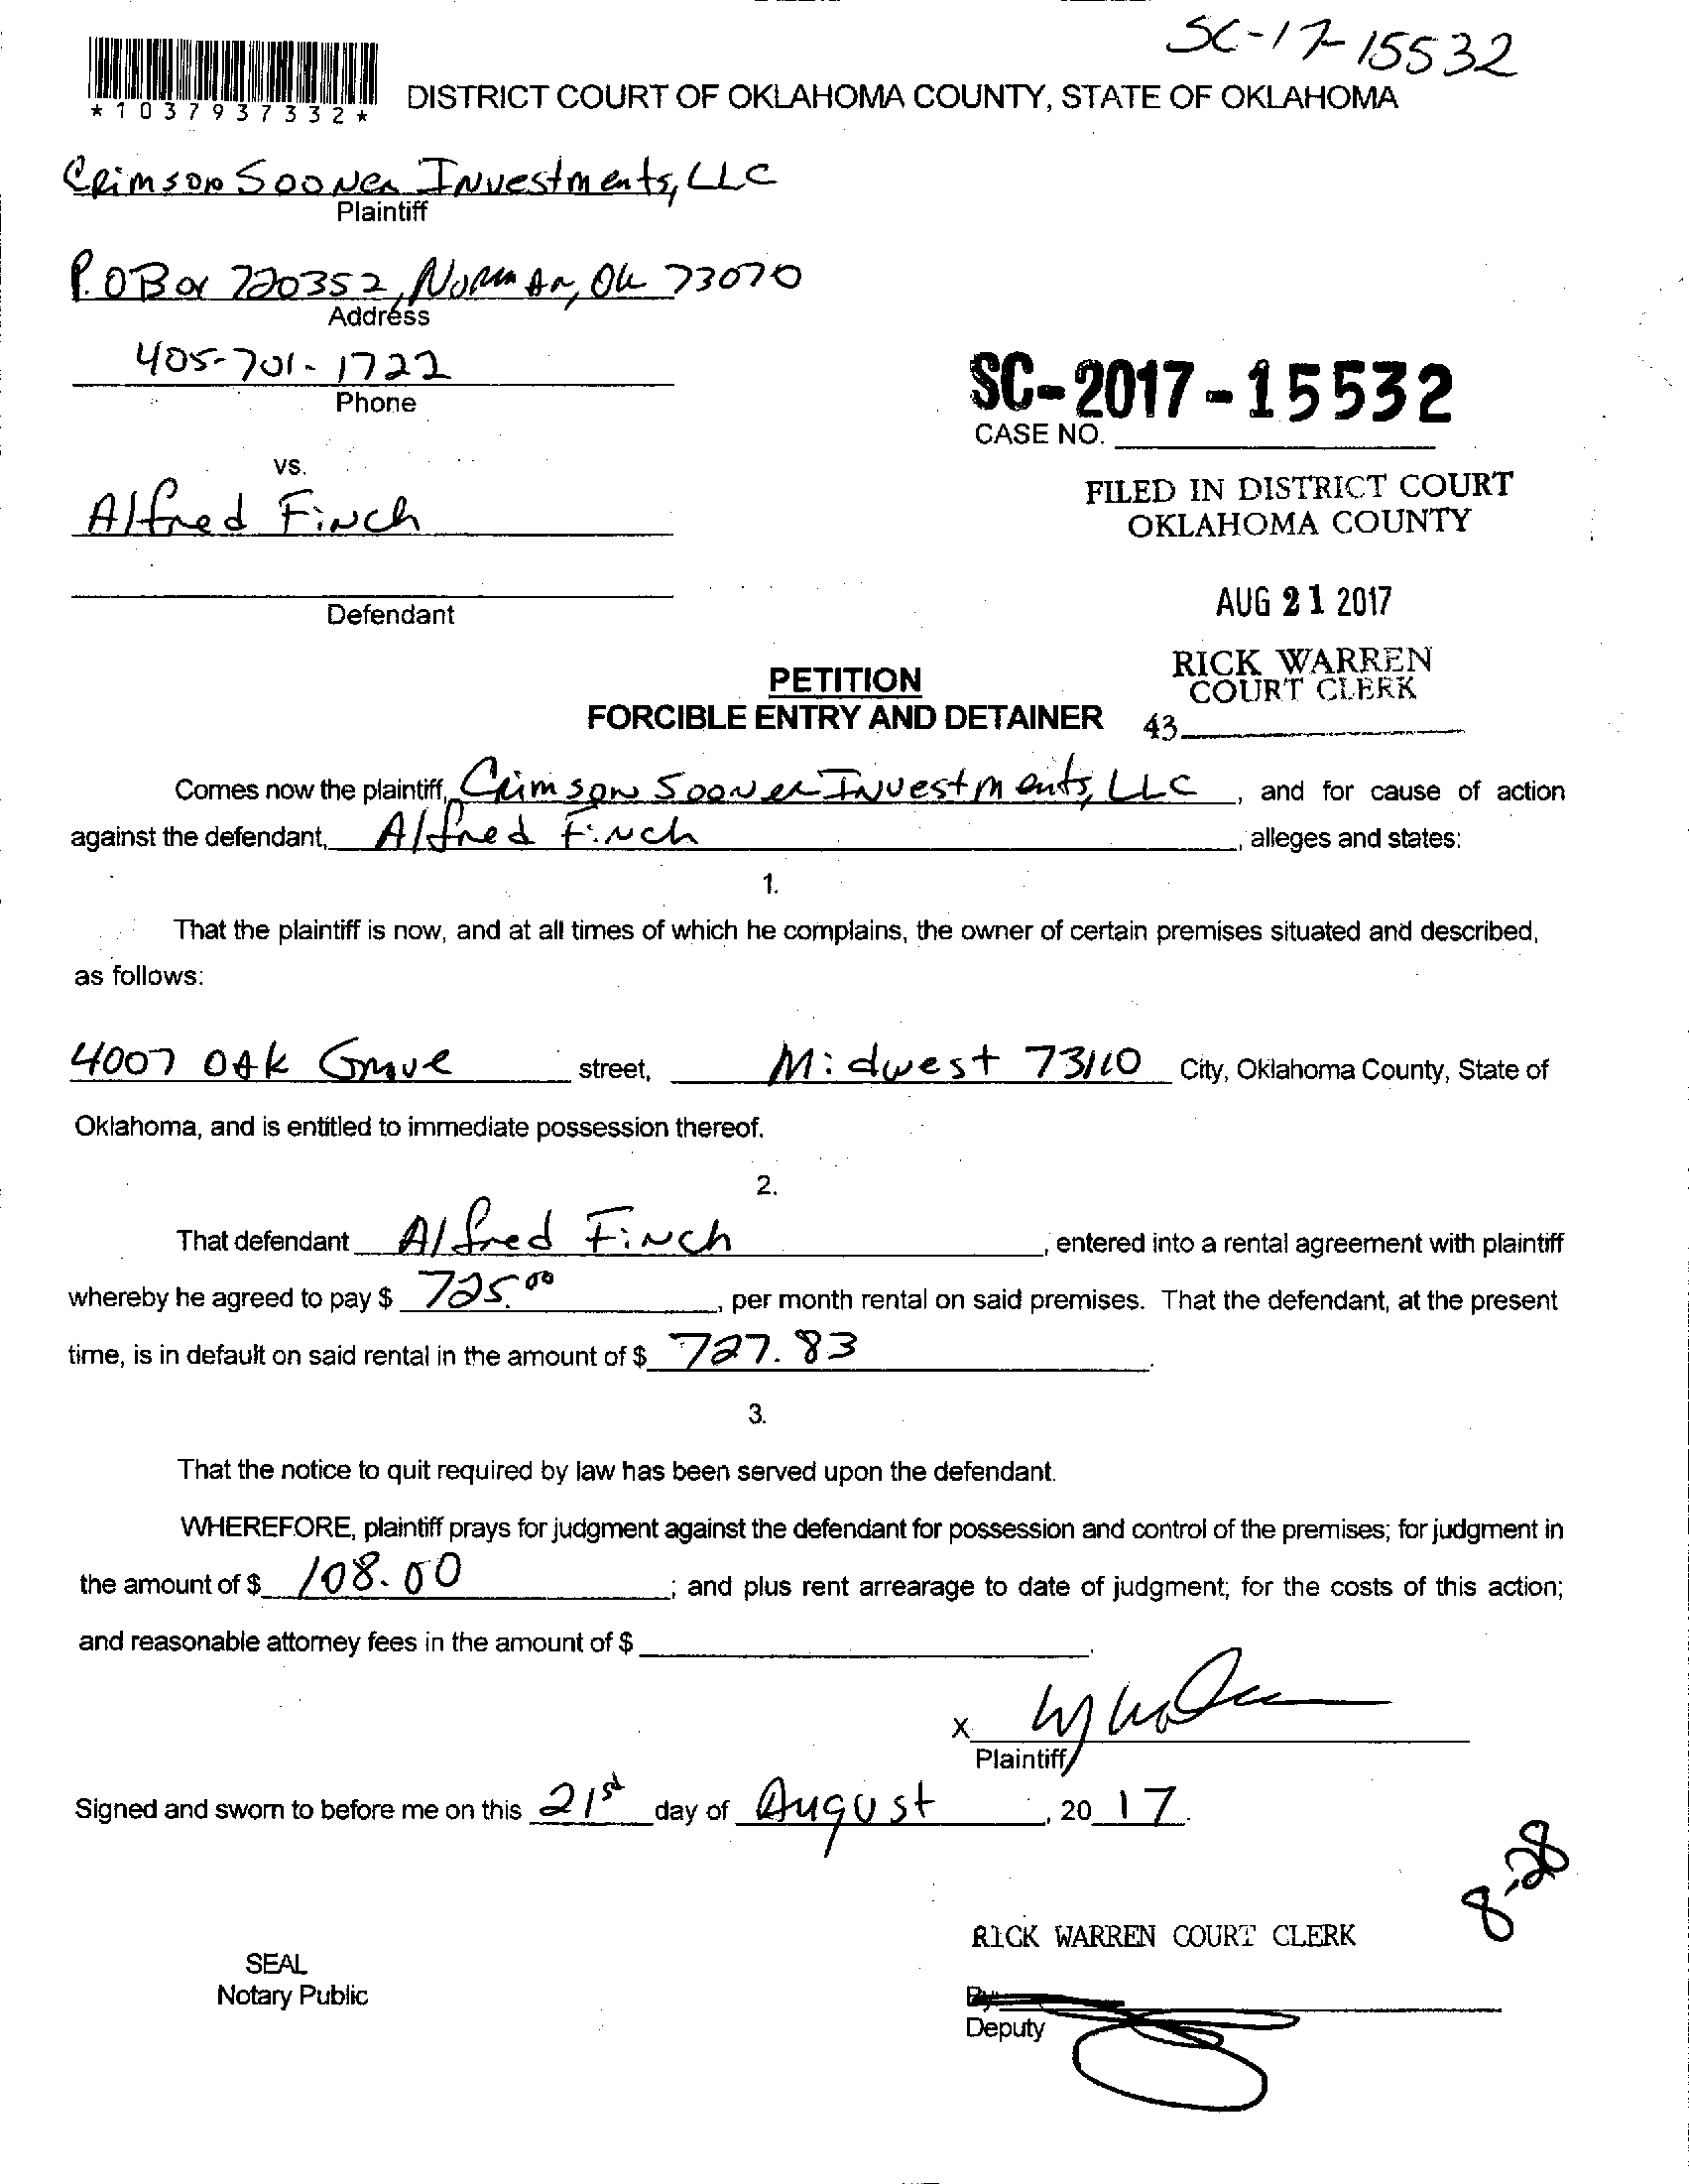 SC-17-15532
*1037937332*
DISTRICT COURT OF OKLAHOMA COUNTY, STATE OF OKLAHOMA
Crimson Sooner Investments, LLC
Plaintiff
P.O Box 720352, Norman, Ok 73070
Address
405-701-1722
Phone
SC-2017-15532
CASE NO.
vs.
FILED IN DISTRICT COURT
OKLAHOMA COUNTY
Alfred Finch
Defendant
AUG 21 2017
RICK WARREN
COURT CLERK
43
PETITION
FORCIBLE ENTRY AND DETAINER
Comes now the plaintiff, Crimson Sooner Investments, LLC, and for cause of action
against the defendant, Alfred Finch, alleges and states:
1.
That the plaintiff is now, and at all times of which he complains, the owner of certain premises situated and described,
as follows:
4007 Oak Grove street, Midwest 73110 City, Oklahoma County, State of
Oklahoma, and is entitled to immediate possession thereof.
2.
That defendant Alfred Finch, entered into a rental agreement with plaintiff
whereby he agreed to pay $ 725.00, per month rental on said premises. That the defendant, at the present
time, is in default on said rental in the amount of $ 727.83.
3.
That the notice to quit required by law has been served upon the defendant.
WHEREFORE, plaintiff prays for judgment against the defendant for possession and control of the premises; for judgment in
the amount of $ 108.00; and plus rent arrearage to date of judgment; for the costs of this action;
and reasonable attorney fees in the amount of $ .
X
Plaintiff
Signed and sworn to before me on this 21st day of August, 20 17.
8-28
RICK WARREN COURT CLERK
SEAL
Notary Public
By:
Deputy